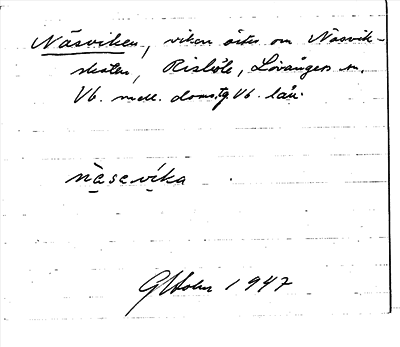 Näsviken, viken öster om Näsvik-
skaten, Risböle, Lövånger sn.
Vb. mell. doms.g Vb. län.
näsevika
GHolm 1947